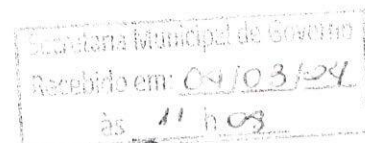 Secretaria Municipal de Governo
Recebido em: 04/03/24
às 11 h 09